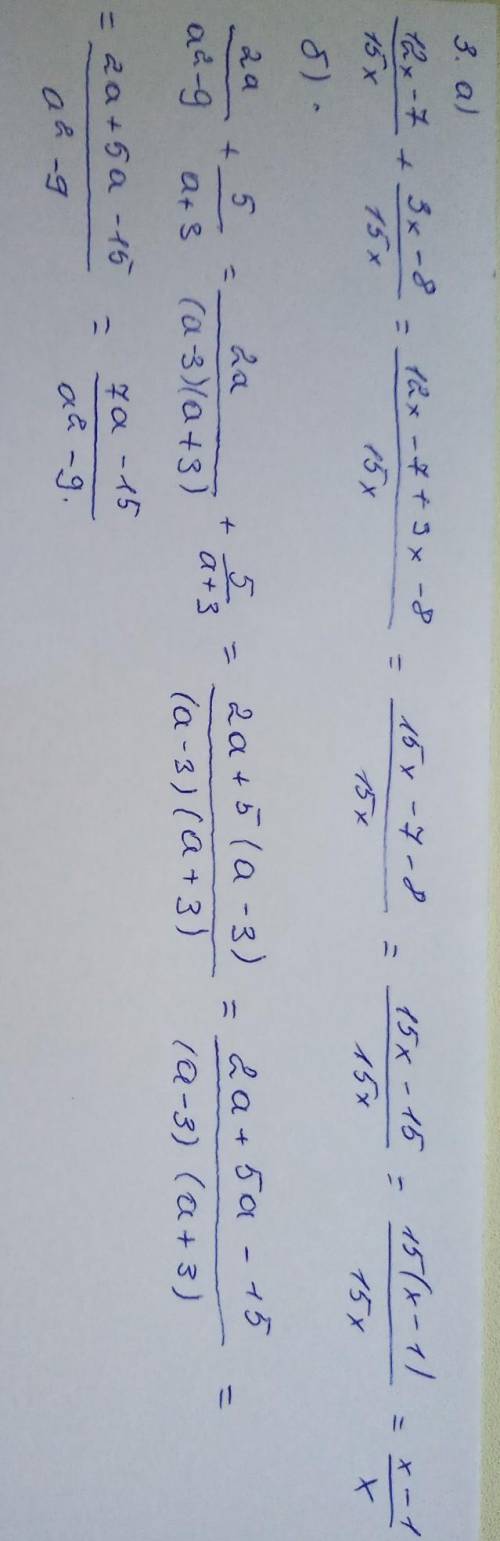 3. а)
(12x-7)/15x + (3x-8)/15x = (12x-7+3x-8)/15x = (15x-7-8)/15x = (15x-15)/15x = 15(x-1)/15x = (x-1)/x
б).
2a/(a²-9) + 5/(a+3) = 2a/((a-3)(a+3)) + 5/(a+3) = (2a+5(a-3))/((a-3)(a+3)) = (2a+5a-15)/((a-3)(a+3)) =
= (2a+5a-15)/(a²-9) = (7a-15)/(a²-9).